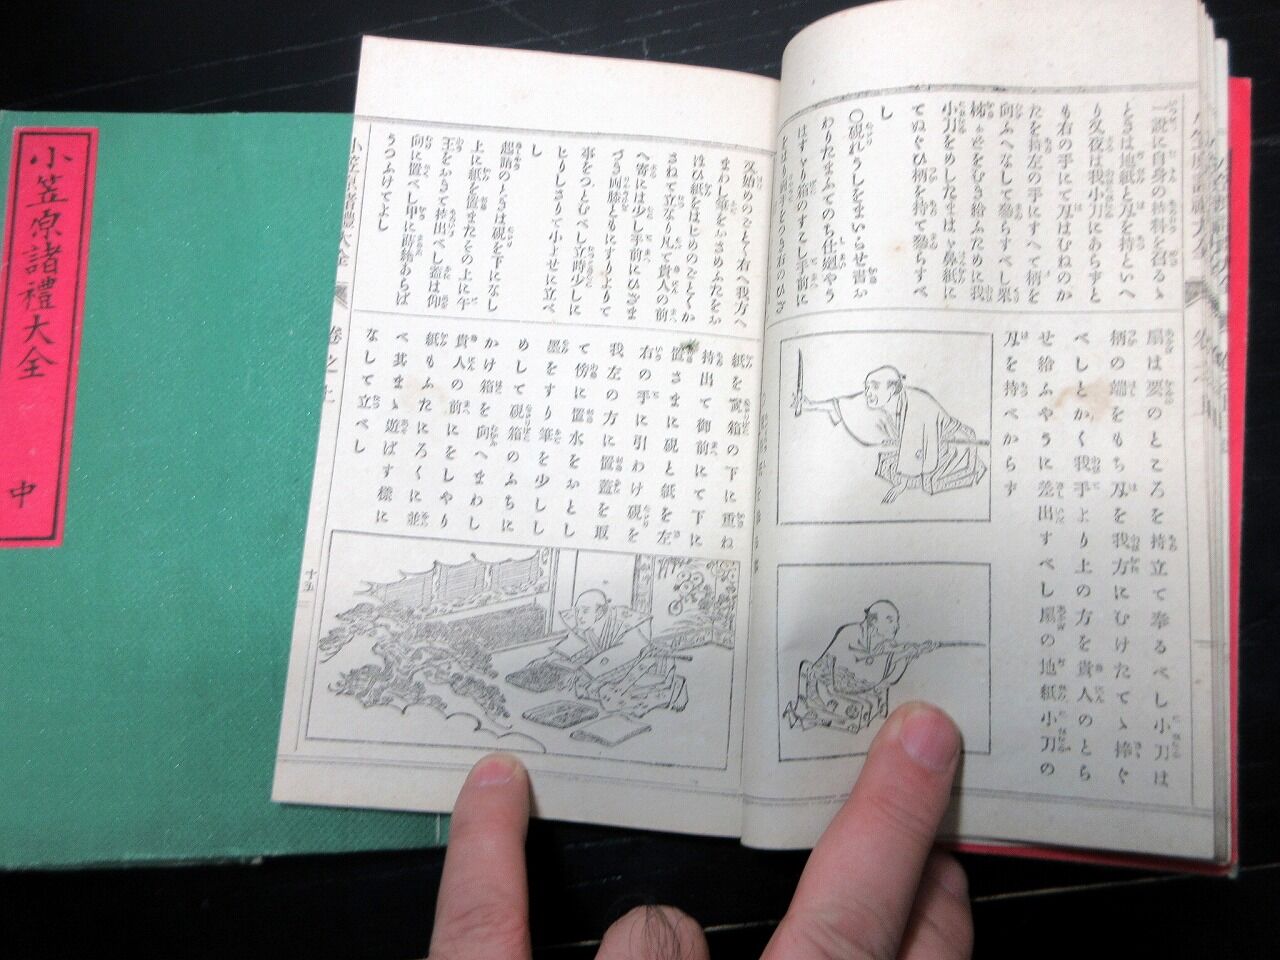 小笠原諸禮大全
中
一說に自身の拵料を召るゝ
ときは地紙と刄を持といへ
り又夜は我小刀にあらずと
も右の手にて刄はむねのか
たを持左の手にすへて柄を
向ふへなして參らすべし果
小刀をめしたまはゞ鼻紙に
てぬぐひ柄を持て參らすべ
し
〇硯れうしをまいらせ書お
わりたまふてのち仕廻やう
はすゞり箱のすこし手前に
扇は要のところを持立て奉るべし小刀は
柄の端をもち刄を我方にむけたてゝ捧ぐ
べしとかく我手より上の方を貴人のとら
せ給ふやうに差出すべし扇の地紙小刀の
刄を持べからず
又始めのごとく右へ我方へ
まわし筆をおさめふたをお
ほひ紙をはじめのごとくか
さねて立なり凡て貴人の前
へ寄には少し手前にひざま
づき兩膝ともにすりよりて
事をつとむべし立時少しに
じりしさりて小よせに立べ
し
起訴のときは硯を下になし
上に紙を置またその上に午
王をおきて持出べし蓋は仰
向に置べし甲に蒔繪あらば
うつぶけてよし
紙を硯箱の下に重ね
持出て御前にて下に
置さまに硯と紙を左
右の手に引わけ硯を
我左の方に置蓋を取
て傍に置水をおとし
墨をすり筆を少しし
めして硯箱のふちに
かけ箱を向へまわし
貴人の前にをしやり
紙もふたにろくに並
べ其まゝ遊ばす樣に
なして立べし
小笠原諸禮大全
卷之上
十五